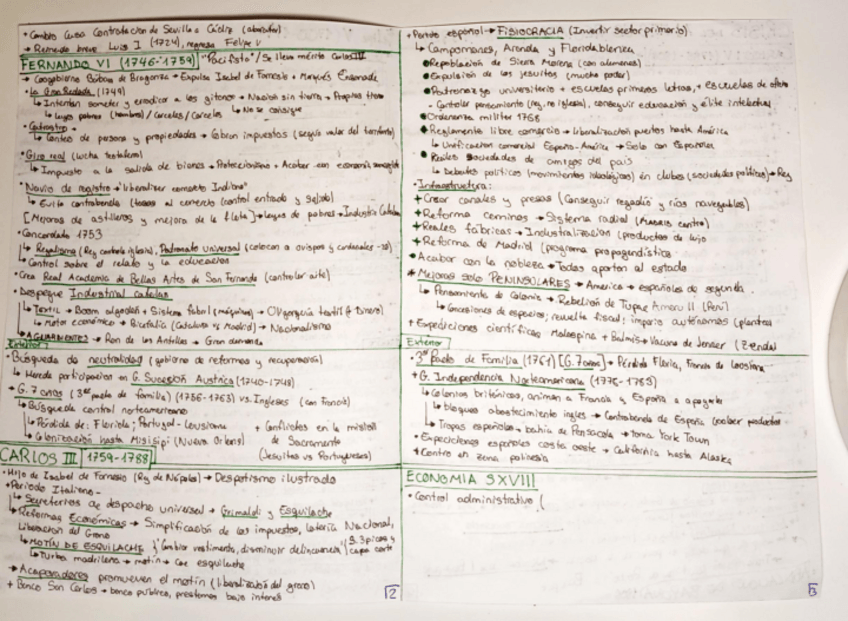 • Cambio Casa Contratación de Sevilla a Cádiz
→ Reinado breve Luis I (1724), regresa Felipe V
FERNANDO VI (1746-1759) "Pacifista" / Se lleva mérito Carlos III
→ Cogobierno Bárbara de Braganza → Expulsa Isabel de Farnesio → Marqués Ensenada
• La Gran Redada (1749)
↳ Intentan someter y erradicar a los gitanos → Nación sin tierra → Propias
↳ (hombres) / Carceles / Carceles ↳ No se consigue
• Catastro →
↳ Conteo de persona y propiedades → Cobran impuestos (según valor del territorio)
• Giro real
↳ Impuesto a la salida de bienes → Proteccionismo + Acabar con economía
• Navío de registro → "liberalizar comercio Indiano"
↳ Evita contrabando (tasas al comercio (control entrada y salida)
[Mejoras de astilleros y mejora de la flota] → leyes de pobres → Industria
• Concordato 1753
↳ Regalismo (Rey controla iglesia), Patronato universal (colocan a obispos y cardenales
↳ Control sobre el relato y la educación
• Crea Real Academia de Bellas Artes de San Fernando (controlar arte)
• Despegue Industrial catalas
↳ Textil → Boom algodón + Sistema fabril (máquinas) → Oligarquía textil (+ Dinero)
↳ Motor económico → Bicefalia (Cataluña vs Madrid) → Nacionalismo
↳ AGUARDIENTES → Ron de las Antillas → Gran demanda
Exterior
• Búsqueda de neutralidad (gobierno de reformas y recuperación)
↳ Hereda participación en G. Sucesión Austriaca (1740-1748)
→ G. 7 anos (3er pacto de familia) (1756-1763) vs. Ingleses (con Francia)
↳ Búsqueda control norteamericano
↳ Pérdida de: Florida; Portugal → Louisiana + Conflictos en la
↳ Colonización hasta Misisipi (Nueva Orleans) de Sacramento
(Jesuitas vs Portugueses)
CARLOS III 1759-1788
• Hijo de Isabel de Farnesio (Rey de Nápoles) → Despotismo ilustrado
• Periodo Italiano -
↳ Secretarios de despacho universal → Grimaldi y Esquilache
↳ Reformas Económicas → Simplificación de los impuestos, Lotería Nacional,
Liberación del Grano
↳ MOTÍN DE ESQUILACHE Cambiar vestimenta, disminuir delincuencia S. 3 picos y capa corta
↳ Turba madrileña → motín → Cae esquilache
→ Acaparadores promueven el motín (liberalización del grano)
+ Banco San Carlos → banco público, prestamos bajo interes
2
• Partido español → FISIOCRACIA (Invertir sector primario)
↳ Campomanes, Aranda y Floridablanca
• Repoblación de Sierra Morena (con alemanes)
• Expulsión de los jesuitas (mucho poder)
• Padronazgo universitario + escuelas primeras letras, + escuelas de
- Controlar pensamiento (rey, no iglesia), conseguir educación y élite intelectual
• Ordenanza militar 1768
• Reglamento libre comercio → Liberalización puertos hasta América
↳ Unificación comercial España-América → Solo con Españoles
• Reales Sociedades de amigos del país
↳ Debates políticos (movimientos ideológicos) en clubes (sociedades políticas) → Rey
• Infraestructura:
+ Crear canales y presas (Conseguir regadío y ríos navegables)
+ Reforma caminos → Sistema radial (Madrid centro)
+ Reales fábricas → Industralización (productos de lujo
+ Reforma de Madrid (programa propagandístico
• Acabar con la nobleza → Todos aportan al estado
* Mejoras solo PENINSULARES → America → españoles de segunda
↳ Pensamiento de Colonia → Rebelión de Tupac Amaru II (Perú)
↳ Concesiones de espacios; revuelta fiscal; imperio autónomos
+ Expediciones científicas Malaspina + Balmis → Vacuna de Jenner
Exterior
• 3er Pacto de Familia (1761) [G. 7 anos] → Pérdida Florida,
+ G. Independencia Norteamericana (1776-1783)
↳ Colonias británicas, animan a Francia y España a apoyarla
↳ bloqueo abastecimiento ingles → Contrabando de España
↳ Tropas españolas → bahía de Pensacola → toma York Town
• Expediciones españolas costa oeste → California hasta Alaska
+ Centro en zona polinesia
ECONOMIA SXVIII
• Control administrativo (
3